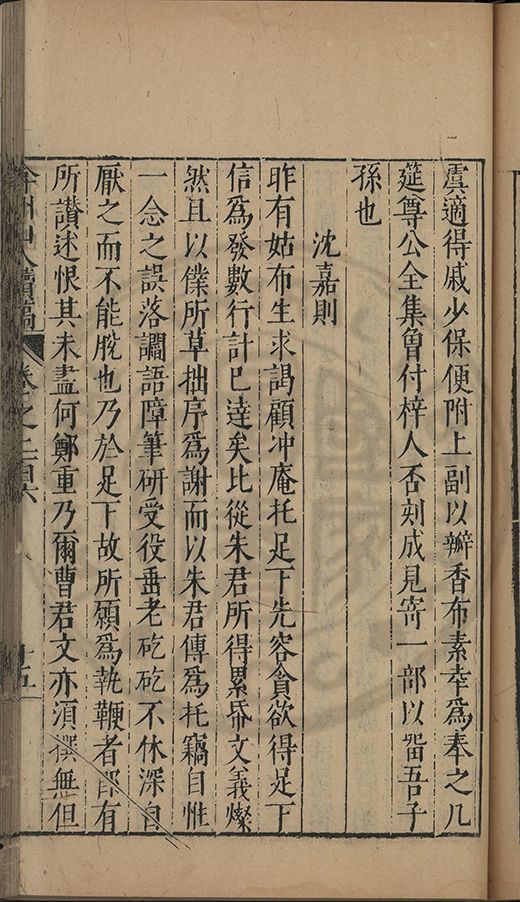 虞適得戚少保便附上副以瓣香布素幸為奉之几
筵尊公全集曾付梓人否刻成見寄一部以畱吾子
孫也
沈嘉則
昨有姑布生求謁顧冲庵托足下先容貪欲得足下
信為發數行計已達矣比從朱君所得累帋文義燦
然且以僕所草拙序為謝而以朱君傳為托竊自惟
一念之誤落讕語障筆研受役垂老矻矻不休深自
厭之而不能脫也乃於足下故所願為執鞭者卽有
所讃述恨其未盡何鄭重乃爾曹君文亦須撰無但
弇州山人續稿 卷之二百六 十五